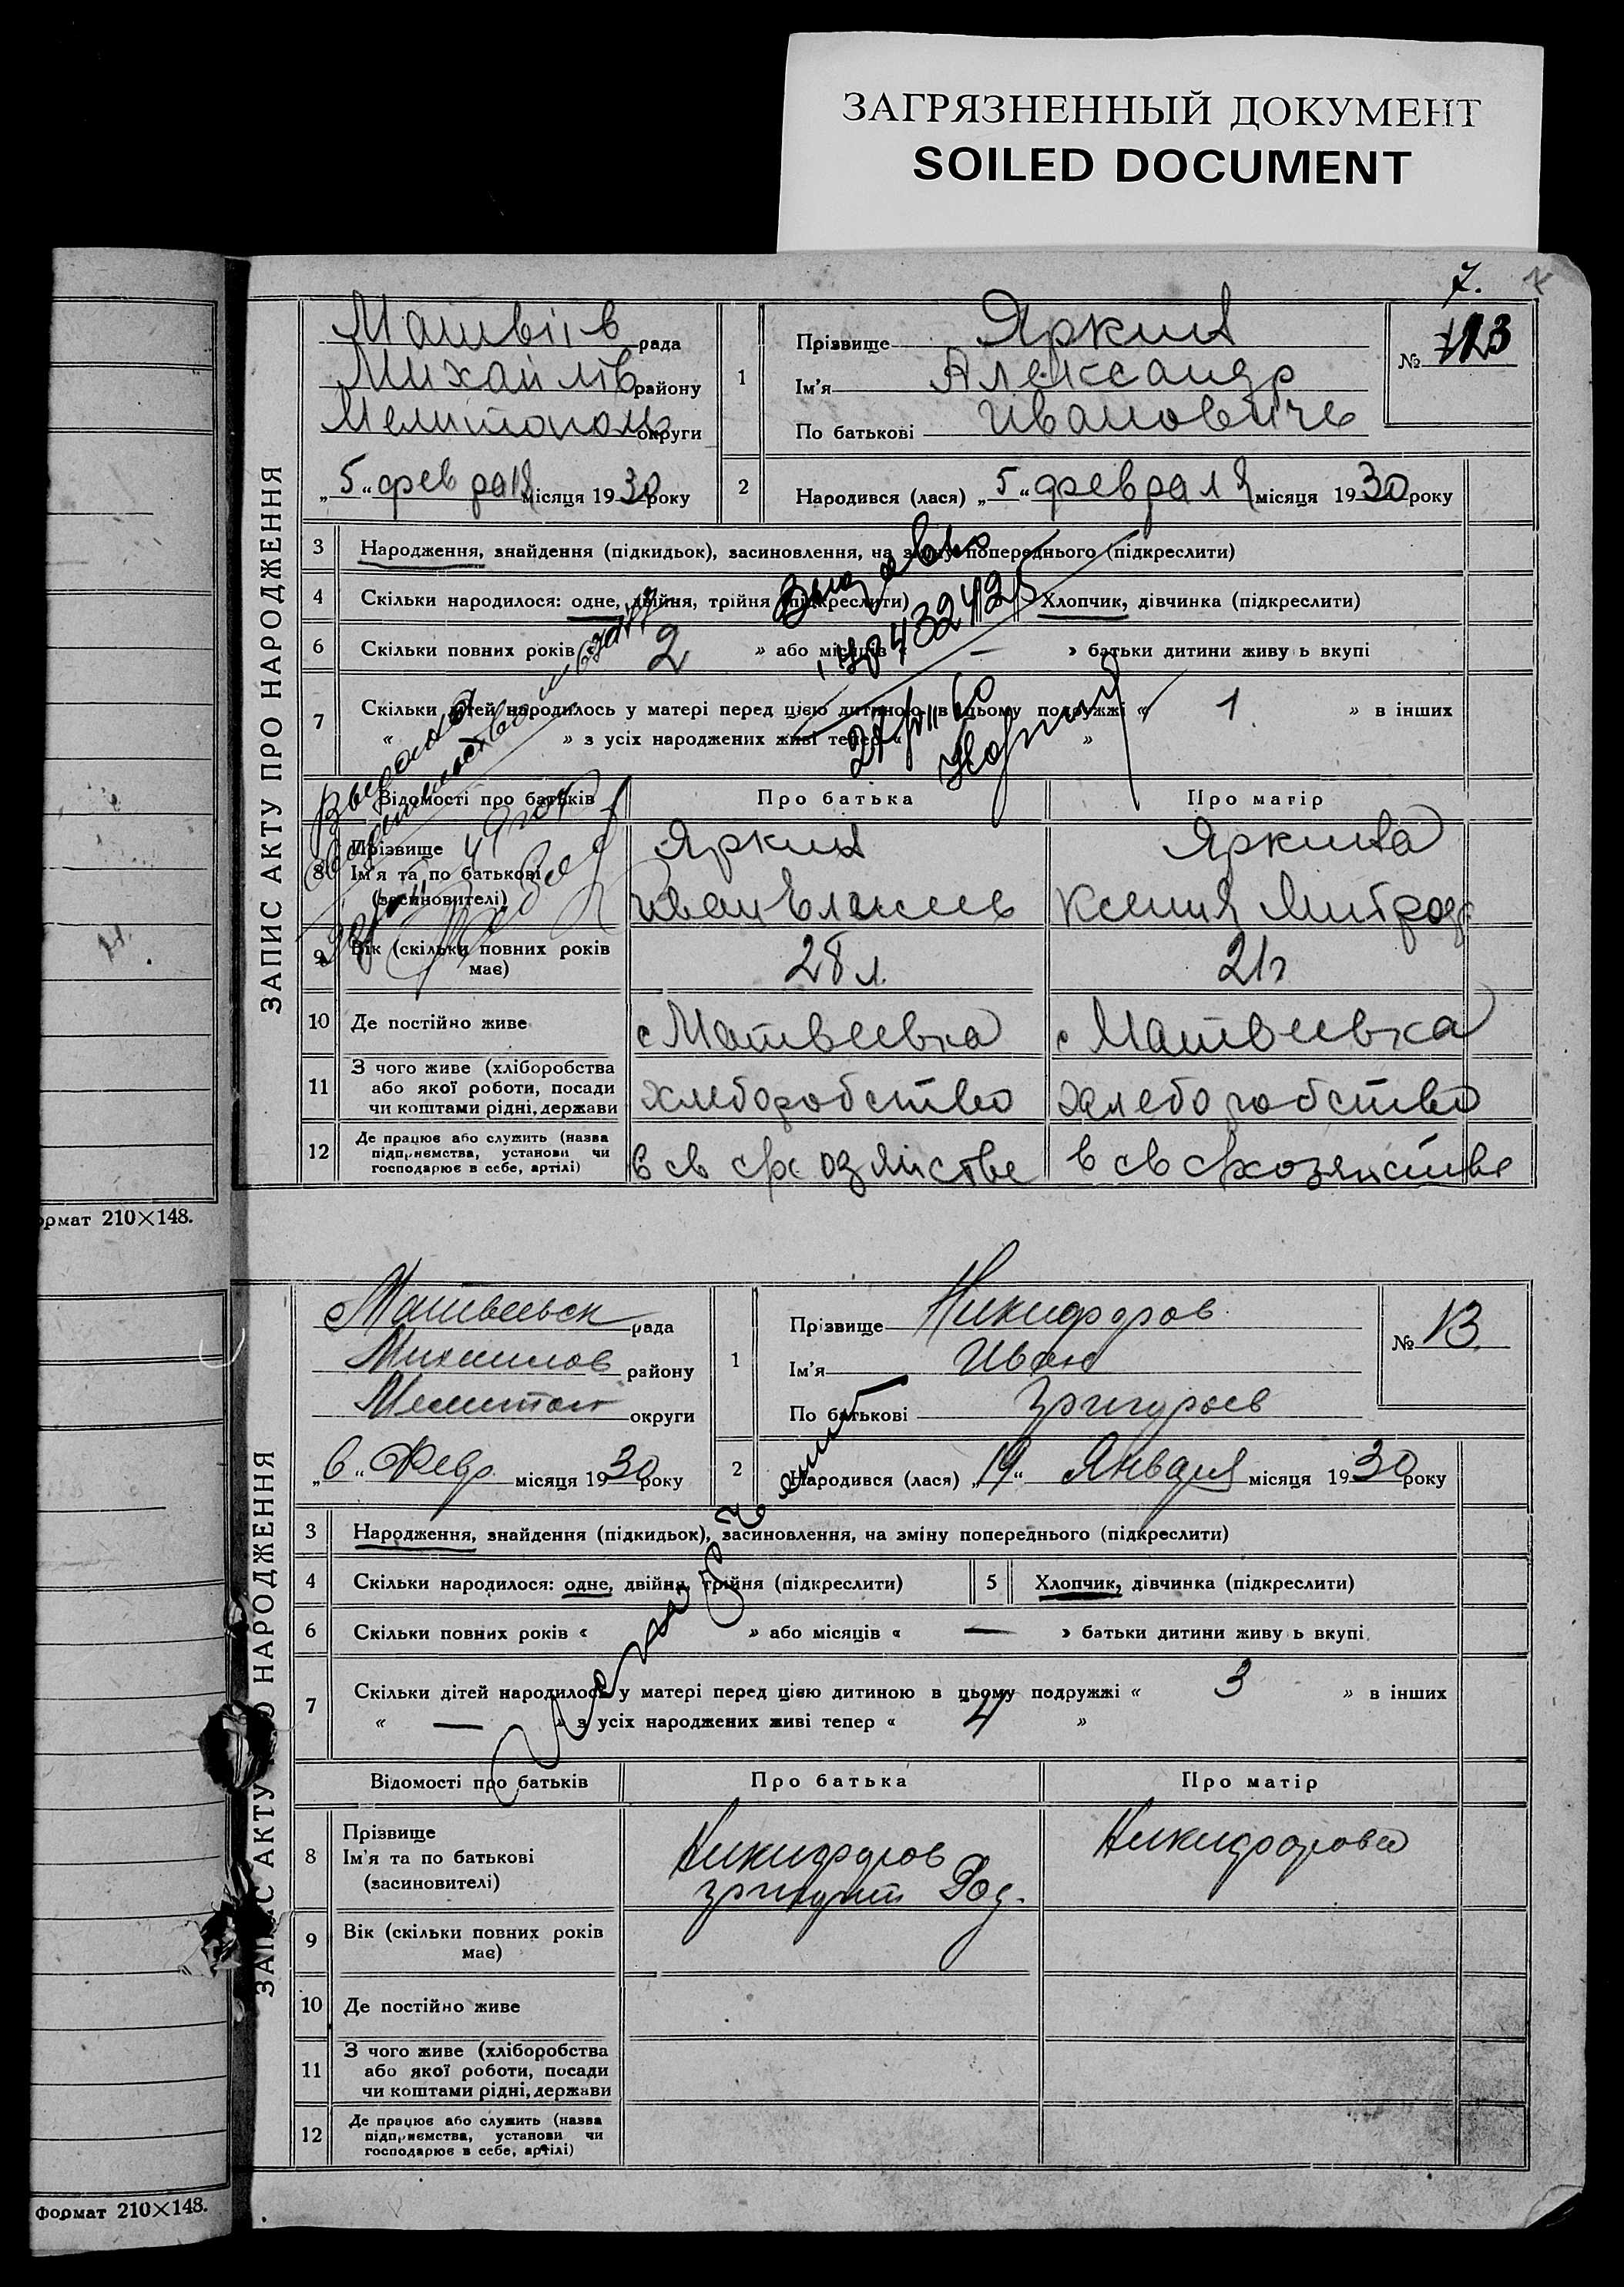 ЗАГРЯЗНЕННЫЙ ДОКУМЕНТ
SOILED DOCUMENT
7.
ЗАПИС АКТУ ПРО НАРОДЖЕННЯ
Матвіів рада
Михайлів району
Мелитополь округи
„5“ февраля місяця 1930 року
1
Прізвище Яркин
Ім'я Александр
По батькові Ивановичь
№ 123
2
Народився (лася) „5“ февраля місяця 1930 року
3 Народження, знайдення (підкидьок), засиновлення, на зміну попереднього (підкреслити)
4 Скільки народилося: одне, двійня, трійня (підкреслити) Хлопчик, дівчинка (підкреслити)
6 Скільки повних років « 2 » або місяців « — » батьки дитини живу ь вкупі
7 Скільки дітей народилось у матері перед цією дитиною в цьому подружжі « 1 » в інших
« » з усіх народжених живі тепер « »
Відомості про батьків Про батька Про матір
8 Прізвище
Ім'я та по батькові
(засиновителі)
Яркин
Иван
Яркина
Ксения Митроф
9 Вік (скільки повних років
має)
28 л.
21 г
10 Де постійно живе с Матвеевка с Матвеевка
11 З чого живе (хліборобства
або якої роботи, посади
чи коштами рідні, держави
хлеборобство хлеборобство
12 Де працює або служить (назва
підприємства, установи чи
господарює в себе, артілі)
в св схозяйстве в св схозяйстве
ормат 210×148.
ЗАПИС АКТУ ПРО НАРОДЖЕННЯ
Матвеевск рада
Михаилов району
Мелитоп округи
„6“ Февр. місяця 1930 року
1
Прізвище Никифоров
Ім'я Иван
По батькові Григорьев
№ 13.
2
Народився (лася) „19“ Января місяця 1930 року
3 Народження, знайдення (підкидьок), засиновлення, на зміну попереднього (підкреслити)
4 Скільки народилося: одне, двійня, трійня (підкреслити) 5 Хлопчик, дівчинка (підкреслити)
6 Скільки повних років « » або місяців « — » батьки дитини живу ь вкупі
7 Скільки дітей народилось у матері перед цією дитиною в цьому подружжі « 3 » в інших
« — » з усіх народжених живі тепер « 4 »
Відомості про батьків Про батька Про матір
8 Прізвище
Ім'я та по батькові
(засиновителі)
Никифоров
Никифорова
9 Вік (скільки повних років
має)
10 Де постійно живе
11 З чого живе (хліборобства
або якої роботи, посади
чи коштами рідні, держави
12 Де працює або служить (назва
підприємства, установи чи
господарює в себе, артілі)
Формат 210×148.